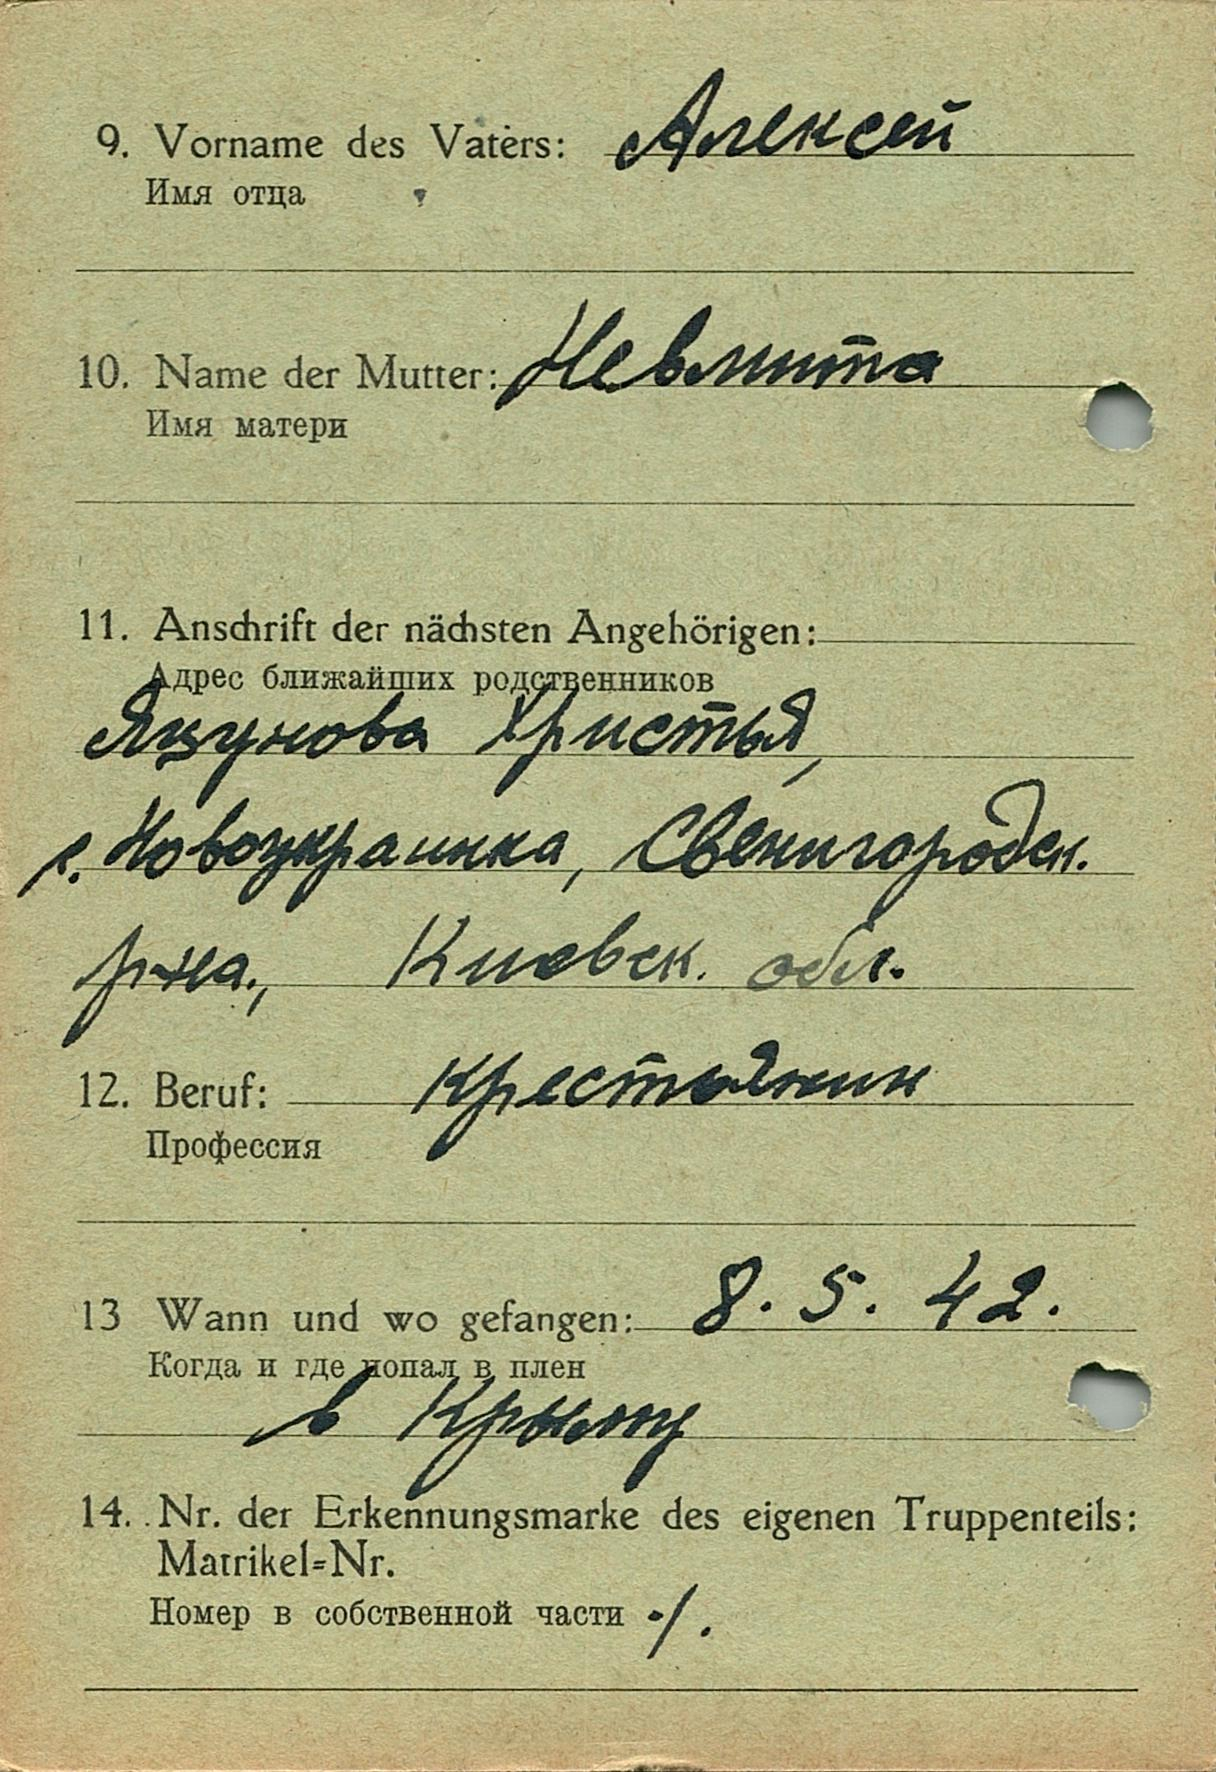 9. Vorname des Vaters: Алексей
Имя отца
10. Name der Mutter: Невмита
Имя матери
11. Anschrift der nächsten Angehörigen:
Адрес ближайших родственников
Яцунова Христья,
с. Новоукраинка, Свенигородск.
р-на., Киевск. обл.
12. Beruf: крестьянин
Профессия
13 Wann und wo gefangen: 8. 5. 42.
Когда и где попал в плен
в Крыму
14. Nr. der Erkennungsmarke des eigenen Truppenteils:
Matrikel=Nr.
Номер в собственной части ·/.